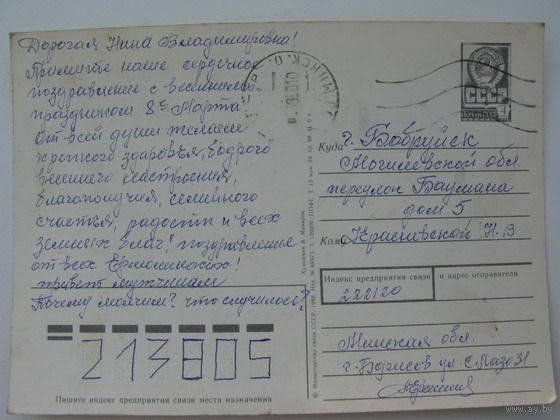 Дорогая Нина Владимировна!
Примите наше сердечное
поздравление с весенним
праздником 8е Марта!
От всей души желаем
крепкого здоровья, бодрого
весеннего настроения,
благополучия, семейного
счастья, радости и всех
земных благ! поздравление
от всех
привет мужчинам
Почему молчите? что случилось?
213805
Пишите индекс предприятия связи места назначения
© Министерство связи СССР, 1988
Художник
МИНСК
СССР
ПОЧТА
4
Куда г. Бобруйск
Могилевской обл.
переулок Баумана
дом 5
Кому Н.В
Индекс предприятия связи и адрес отправителя
222120
Минская обл.
г. Борисов ул. С. Лазо 31
www.ay.by